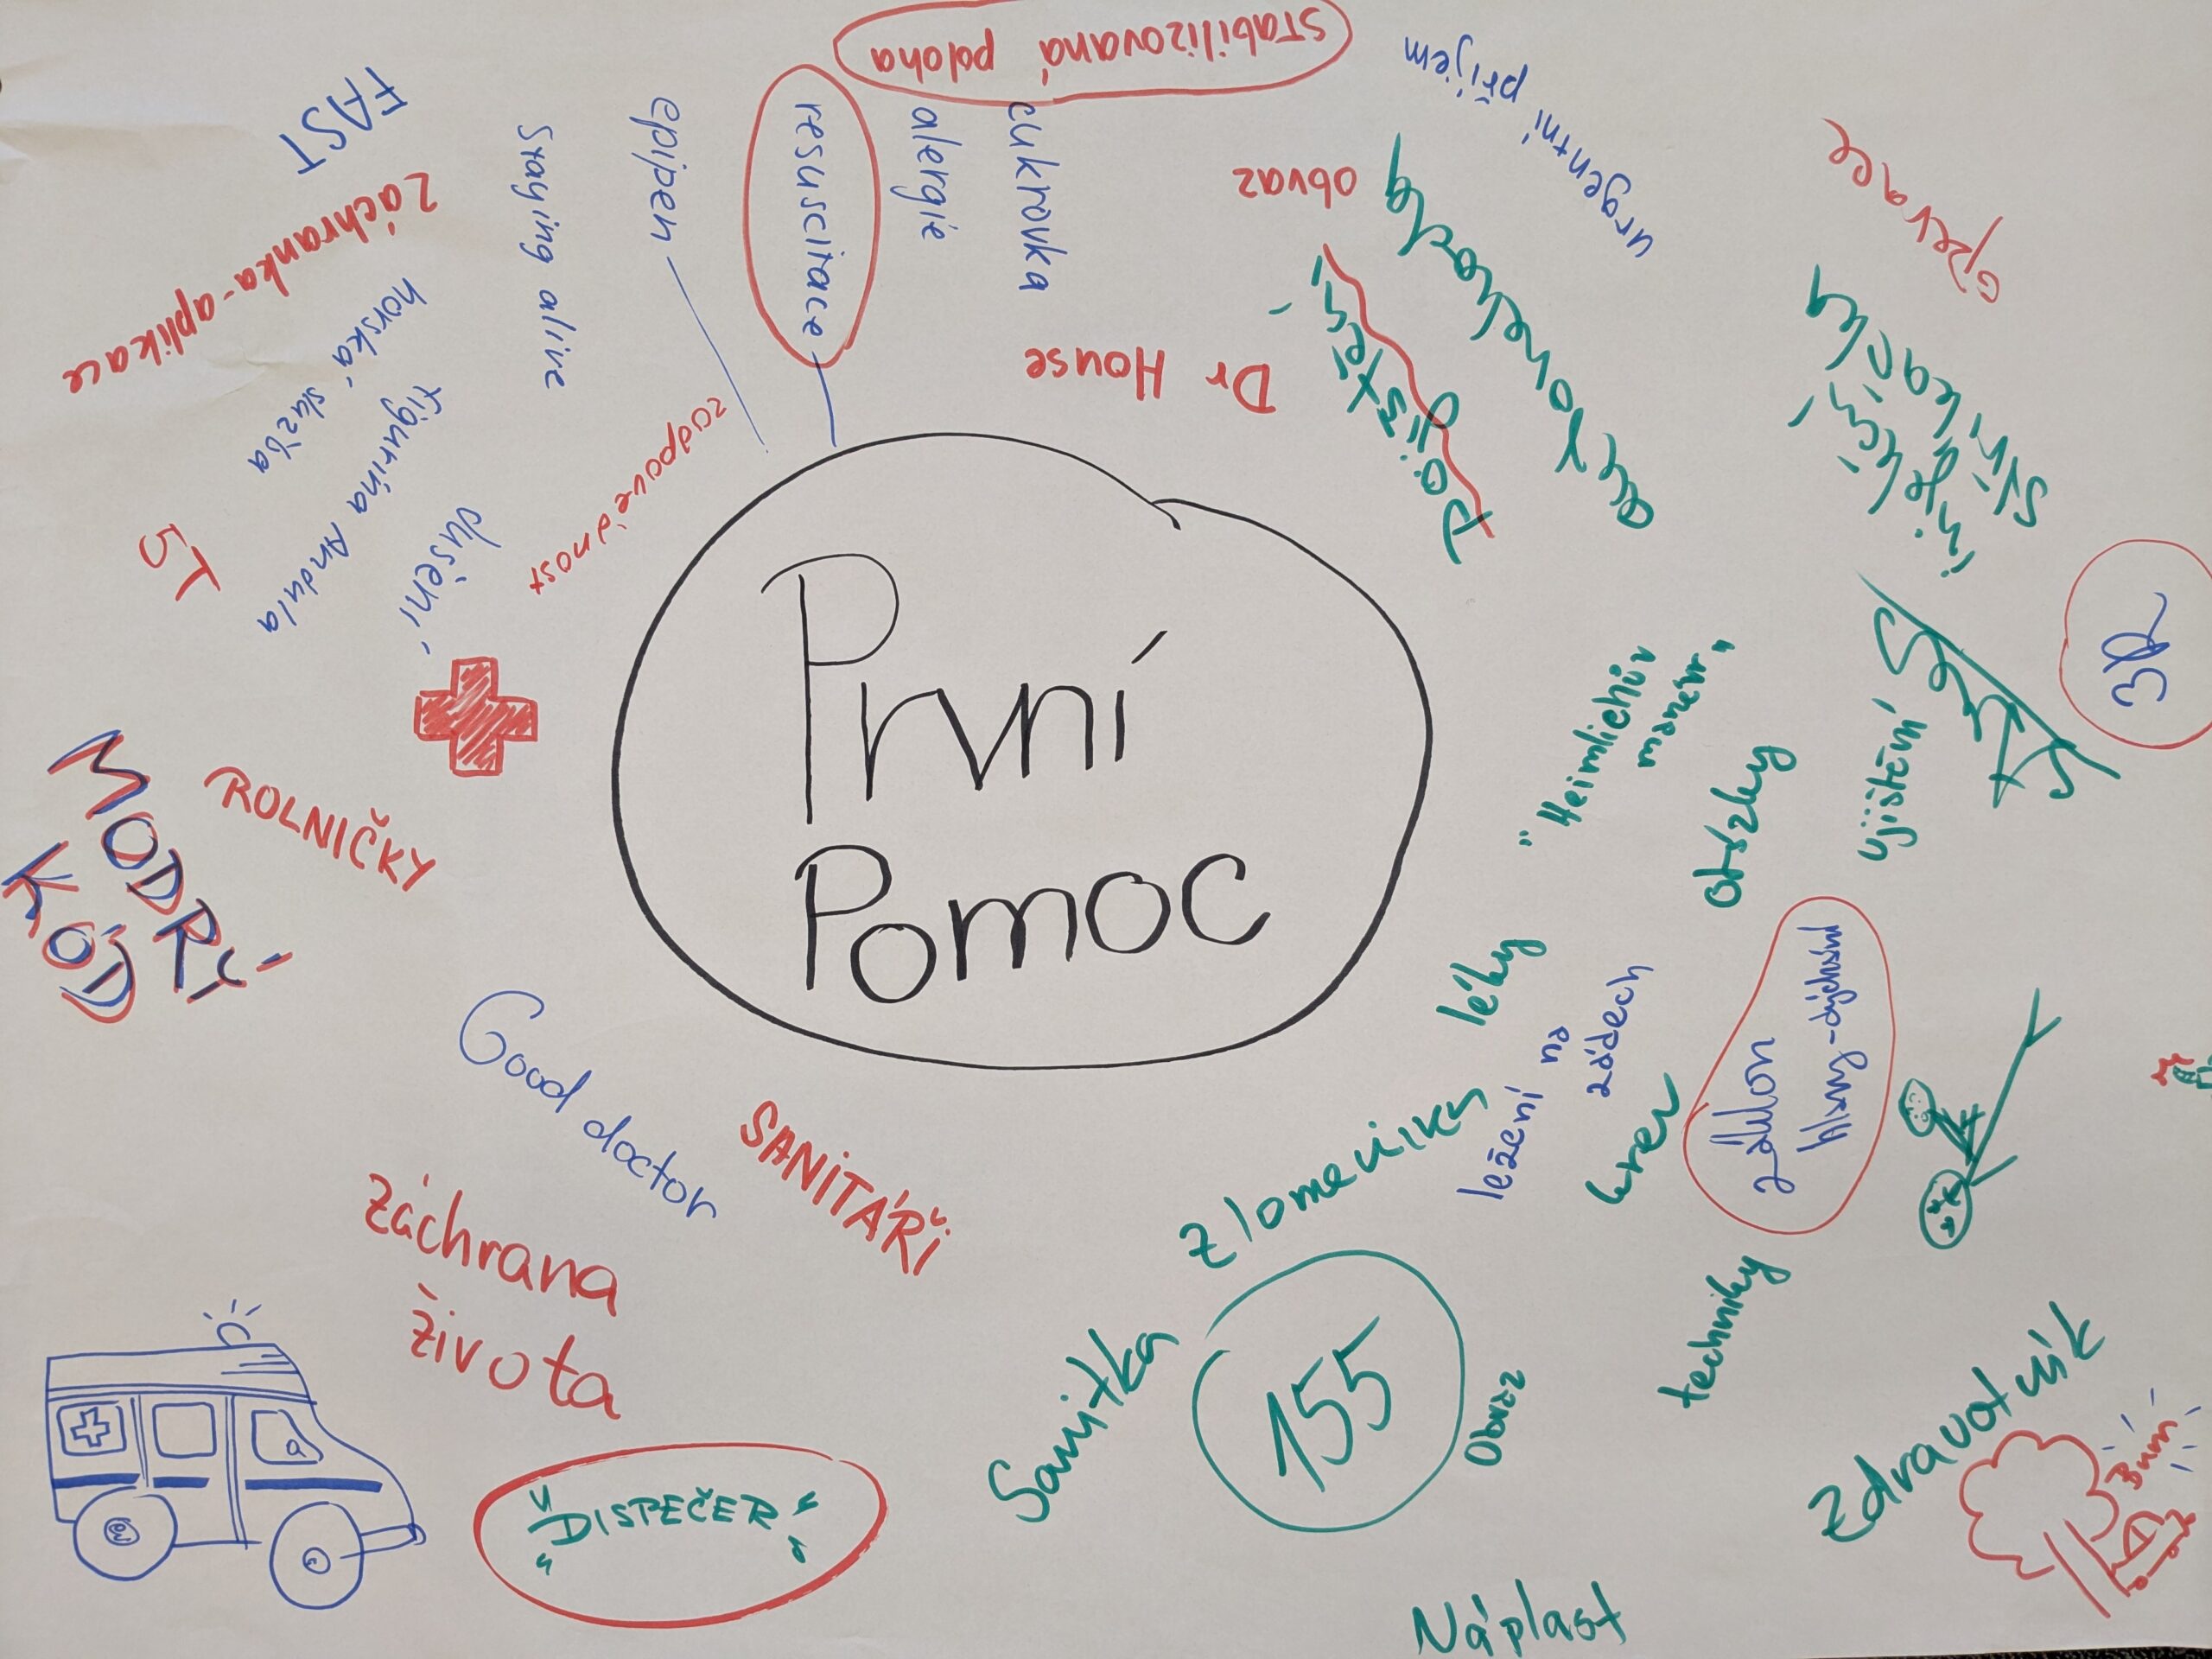 stabilizovaná poloha
urgentní příjem
FAST
epipen
ressuscitace
alergie
cukrovka
Staying alive
obvaz
Záchranka-aplikace
horská služba
figurína Andula
dušení
zodpovědnost
Dr House
5T
3R
První
Pomoc
"Heimlichův
manévr"
otázky
ujištění
MODRÝ
KÓD
ROLNIČKY
léky
ležení na
zádech
krev
záklon
hlavy-dýchání
Good doctor
SANITÁŘI
Záchrana
života
Zlomeniny
Sanitka
155
Obvaz
techniky
Zdravotník
Bum
"DISPEČER"
Náplast